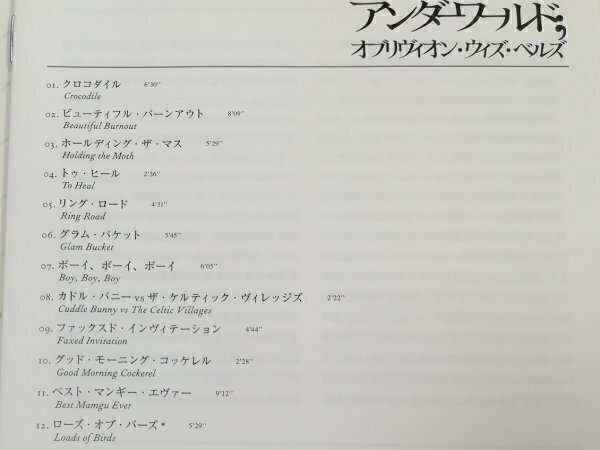 アンダーワールド;
オブリヴィオン・ウィズ・ベルズ
01. クロコダイル 6'30"
Crocodile
02. ビューティフル・バーンアウト 8'09"
Beautiful Burnout
03. ホールディング・ザ・マス 5'29"
Holding the Moth
04. トゥ・ヒール 2'36"
To Heal
05. リング・ロード 4'31"
Ring Road
06. グラム・バケット 5'45"
Glam Bucket
07. ボーイ、ボーイ、ボーイ 6'05"
Boy, Boy, Boy
08. カドル・バニー vs ザ・ケルティック・ヴィレッジズ 2'22"
Cuddle Bunny vs The Celtic Villages
09. ファックスド・インヴィテーション 4'44"
Faxed Invitation
10. グッド・モーニング・コッケレル 2'28"
Good Morning Cockerel
11. ベスト・マンギー・エヴァー 9'12"
Best Mamgu Ever
12. ローズ・オブ・バーズ * 5'29"
Loads of Birds